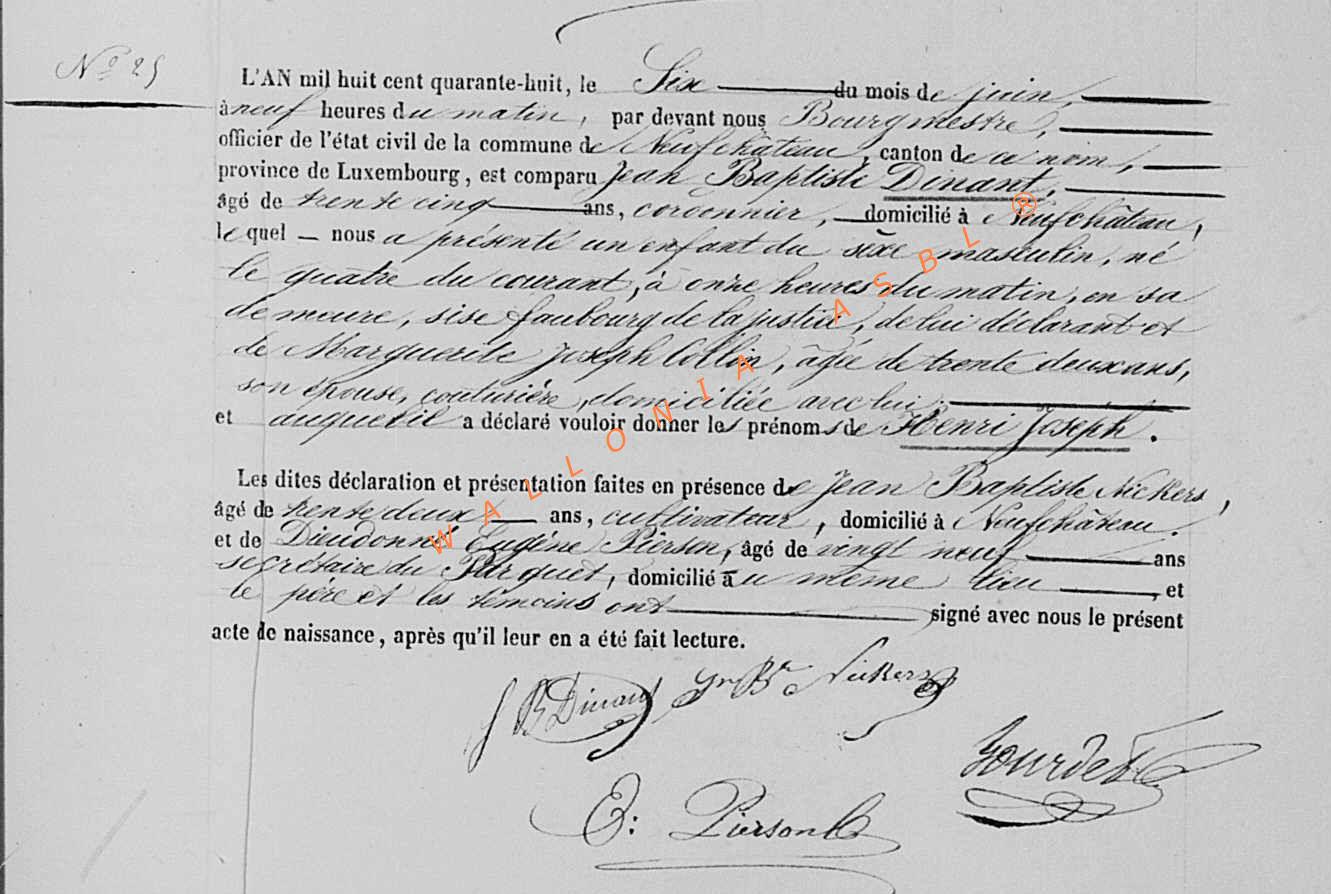 N.º 25
L'AN mil huit cent quarante-huit, le Six du mois de juin,
à neuf heures du matin, par devant nous Bourgmestre,
officier de l'état civil de la commune de Neufchâteau, canton de ce nom,
province de Luxembourg, est comparu Jean Baptiste Dinant,
âgé de trente cinq ans, cordonnier, domicilié à Neufchâteau,
le quel — nous a présenté un enfant du sexe masculin, né
le quatre du courant, à onze heures du matin, en sa
demeure, sise faubourg de la justice, de lui déclarant et
de Marguerite Joseph Collin, âgée de trente deux ans,
son épouse, couturière, domiciliée avec lui,
et auquel il a déclaré vouloir donner les prénoms de Henri Joseph.
Les dites déclaration et présentation faites en présence de Jean Baptiste Nickers,
âgé de trente deux — ans, cultivateur, domicilié à Neufchâteau.
et de Dieudonné Eugène Pierson, âgé de vingt neuf ans
secrétaire du Parquet, domicilié au même lieu, et
le père et les témoins ont signé avec nous le présent
acte de naissance, après qu'il leur en a été fait lecture.
J B Dinant Jn Bte Nickers
E: Pierson
WALLONIA ASBL ®